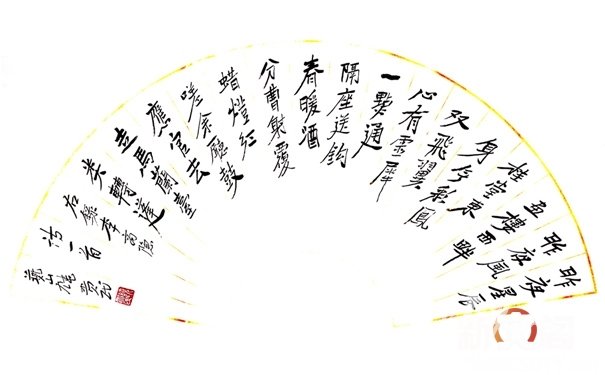 昨夜星辰
昨夜風
画樓西畔
桂堂東
身无彩鳳
双飛翼
心有霊犀
一點通
隔座送鈎
春暖酒
分曹射覆
蜡燈红
嗟余聽鼓
應官去
走馬蘭臺
类轉蓬
右録李商隐
诗一首